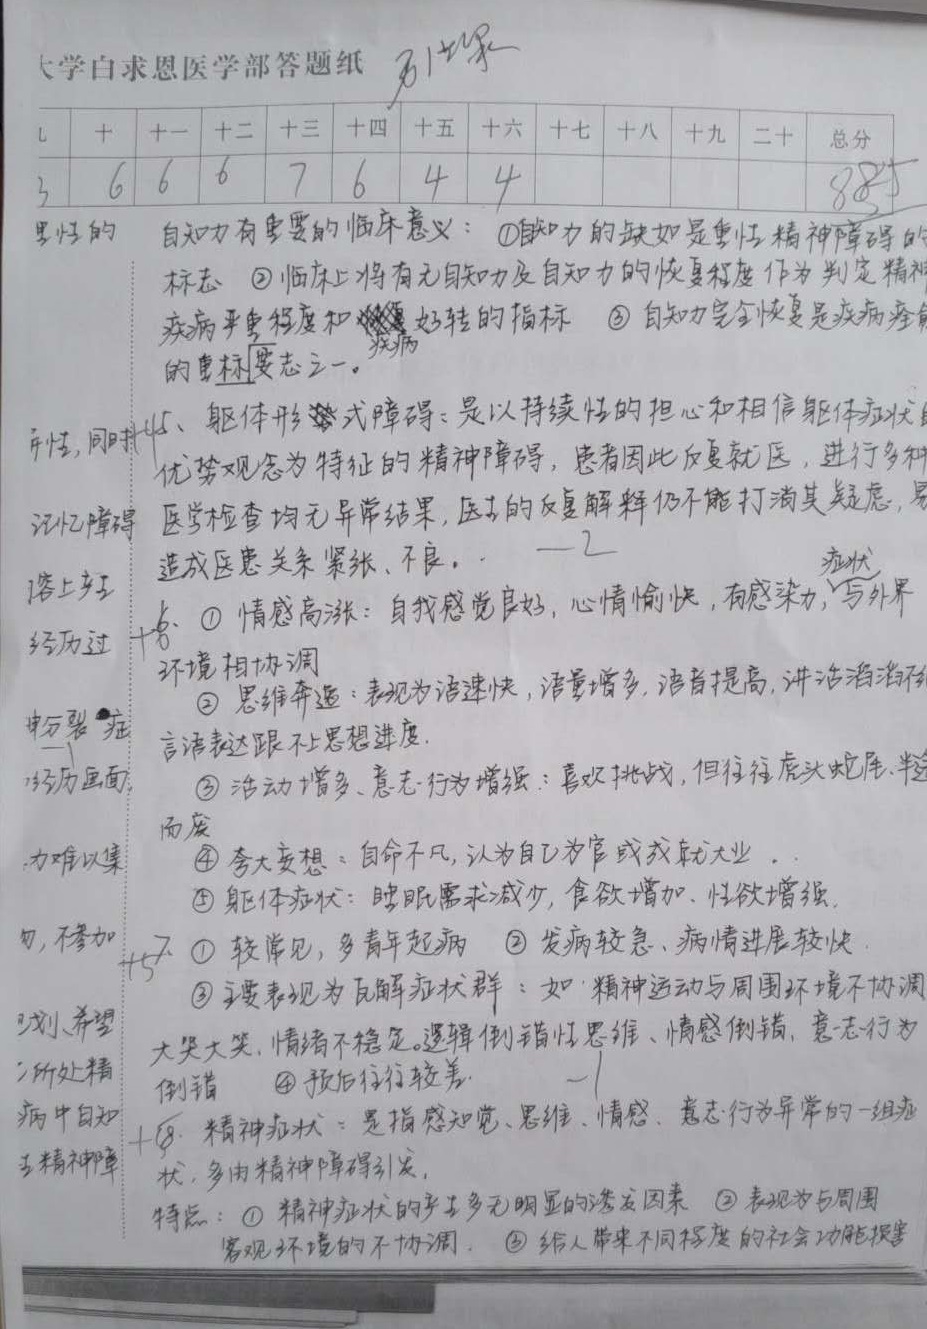 大学白求恩医学部答题纸
十 十一 十二 十三 十四 十五 十六 十七 十八 十九 二十 总分
3 6 6 6 7 6 4 4 885
自知力有重要的临床意义：①自知力的缺如是重性精神障碍的
标志 ②临床上将有无自知力及自知力的恢复程度作为判定精神
疾病严重程度和疾病好转的指标 ③自知力完全恢复是疾病痊愈
的重标要志之一。
+4 5、躯体形式障碍：是以持续性的担心和相信躯体症状的
优势观念为特征的精神障碍，患者因此反复就医，进行多种
医学检查均无异常结果，医生的反复解释仍不能打消其疑虑，易
造成医患关系紧张、不良。 -2
+6 6. ①情感高涨：自我感觉良好，心情愉快，有感染力，症状与外界
环境相协调
②思维奔逸：表现为语速快，语量增多，语音提高，讲话滔滔不绝
言语表达跟不上思想进度.
③活动增多、意志行为增强：喜欢挑战，但往往虎头蛇尾、半途
而废
④夸大妄想：自命不凡，认为自己为官或成就大业.
⑤躯体症状：睡眠需求减少，食欲增加、性欲增强.
+5 7. ①较常见，多青年起病 ②发病较急、病情进展较快.
③主要表现为瓦解症状群：如精神运动与周围环境不协调
大哭大笑，情绪不稳定。逻辑倒错性思维、情感倒错，意志行为
倒错 ④预后往往较差. -1
8. 精神症状：是指感知觉、思维、情感、意志行为异常的一组症
状，多由精神障碍引发.
特点：①精神症状的产生多无明显的诱发因素 ②表现为与周围
客观环境的不协调. ③给人带来不同程度的社会功能损害
性的
异性，同时
记忆障碍
经历过
神分裂症
-1
经历画面，
力难以集
不参加
划、希望
所处精
病中自知
精神障